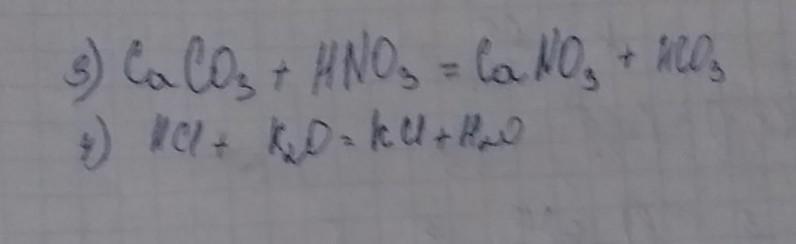 3) CaCO₃ + HNO₃ = CaNO₃ + HCO₃
4) HCl + K₂O = KCl + H₂O